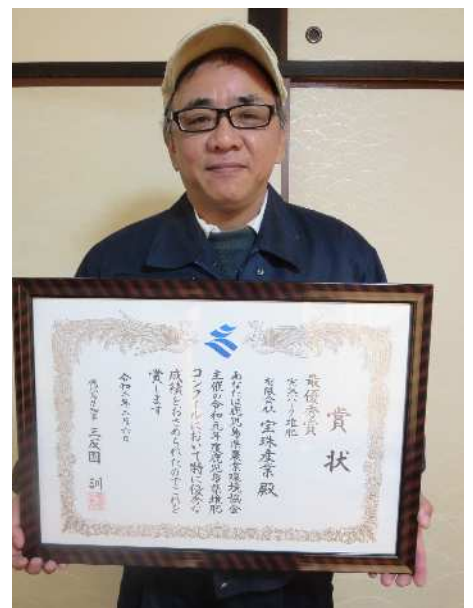 賞状
最優秀賞
有限会社 宝珠産業 殿
あなたは鹿児島県農業環境協会
主催の令和元年度鹿児島県堆肥
コンクールにおいて特に優秀な
成績をおさめられたのでこれを
賞します
令和二年二月六日
鹿児島県知事 三反園 訓